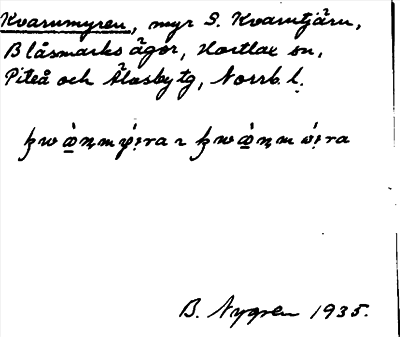 Kvarnmyren, myr S. Kvarntjärn,
Blåsmarks ägor, Hortlax sn,
Piteå och Älvsby tg, Norrb. l.
B. Nygren 1935.